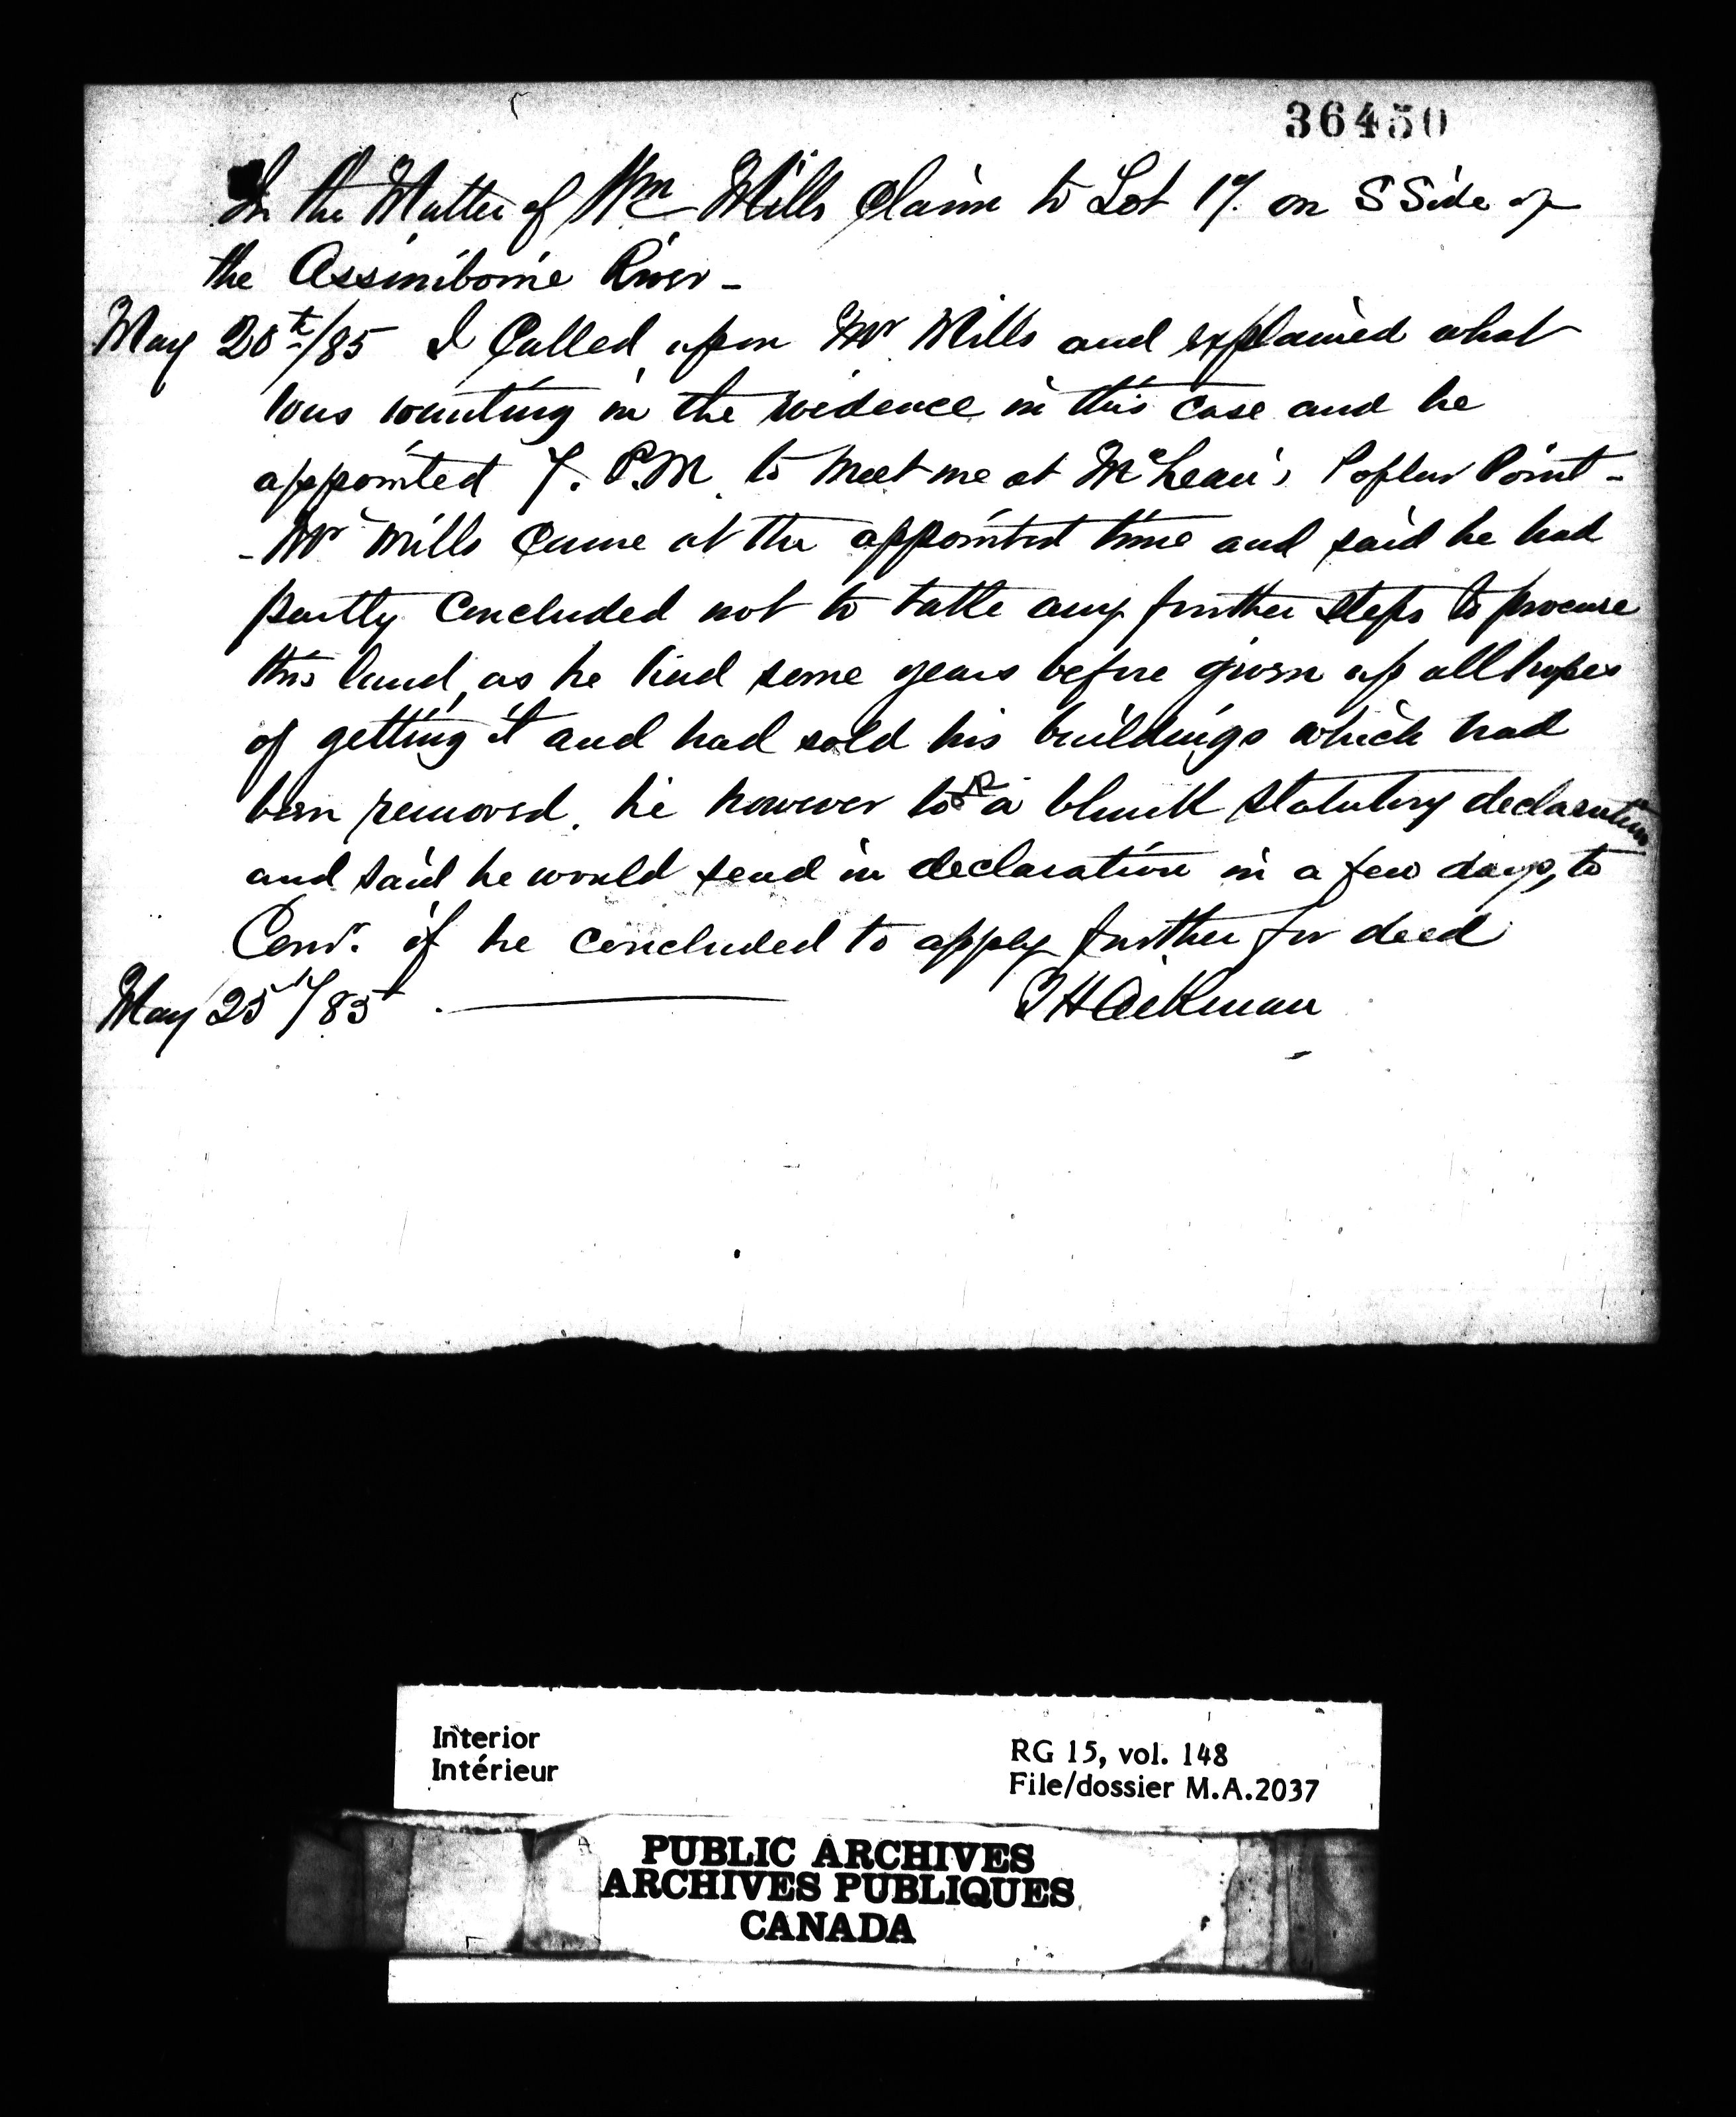 36450
In the Matter of Wm Mills Claim to Lot 17. on S Side of
the Assiniboine River -
May 20th/85 I Called upon Mr Mills and explained what
was wanting in the evidence in this case and he
appointed 7. P.M. to meet me at McLean's Poplar Point -
- Mr Mills Came at the appointed time and said he had
partly Concluded not to take any further steps to procure
this land, as he had some years before given up all hopes
of getting it and had sold his buildings which had
been removed. he however took a blank statutory declaration
and said he would send in declaration in a few days, to
Comr. if he concluded to apply further for deed
May 25th/85 . ——— Aikman
Interior
Intérieur
RG 15, vol. 148
File/dossier M.A.2037
PUBLIC ARCHIVES
ARCHIVES PUBLIQUES
CANADA